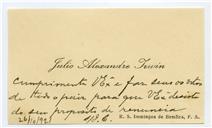 Julio Alexandre Irwin
Cumprimenta V Exª e faz seus votos
de tudo o peior para que V Exª desista
do seu proposito de renuncia
26/10/92 S/C. R. S. Domingos de Bemfica, P. A.